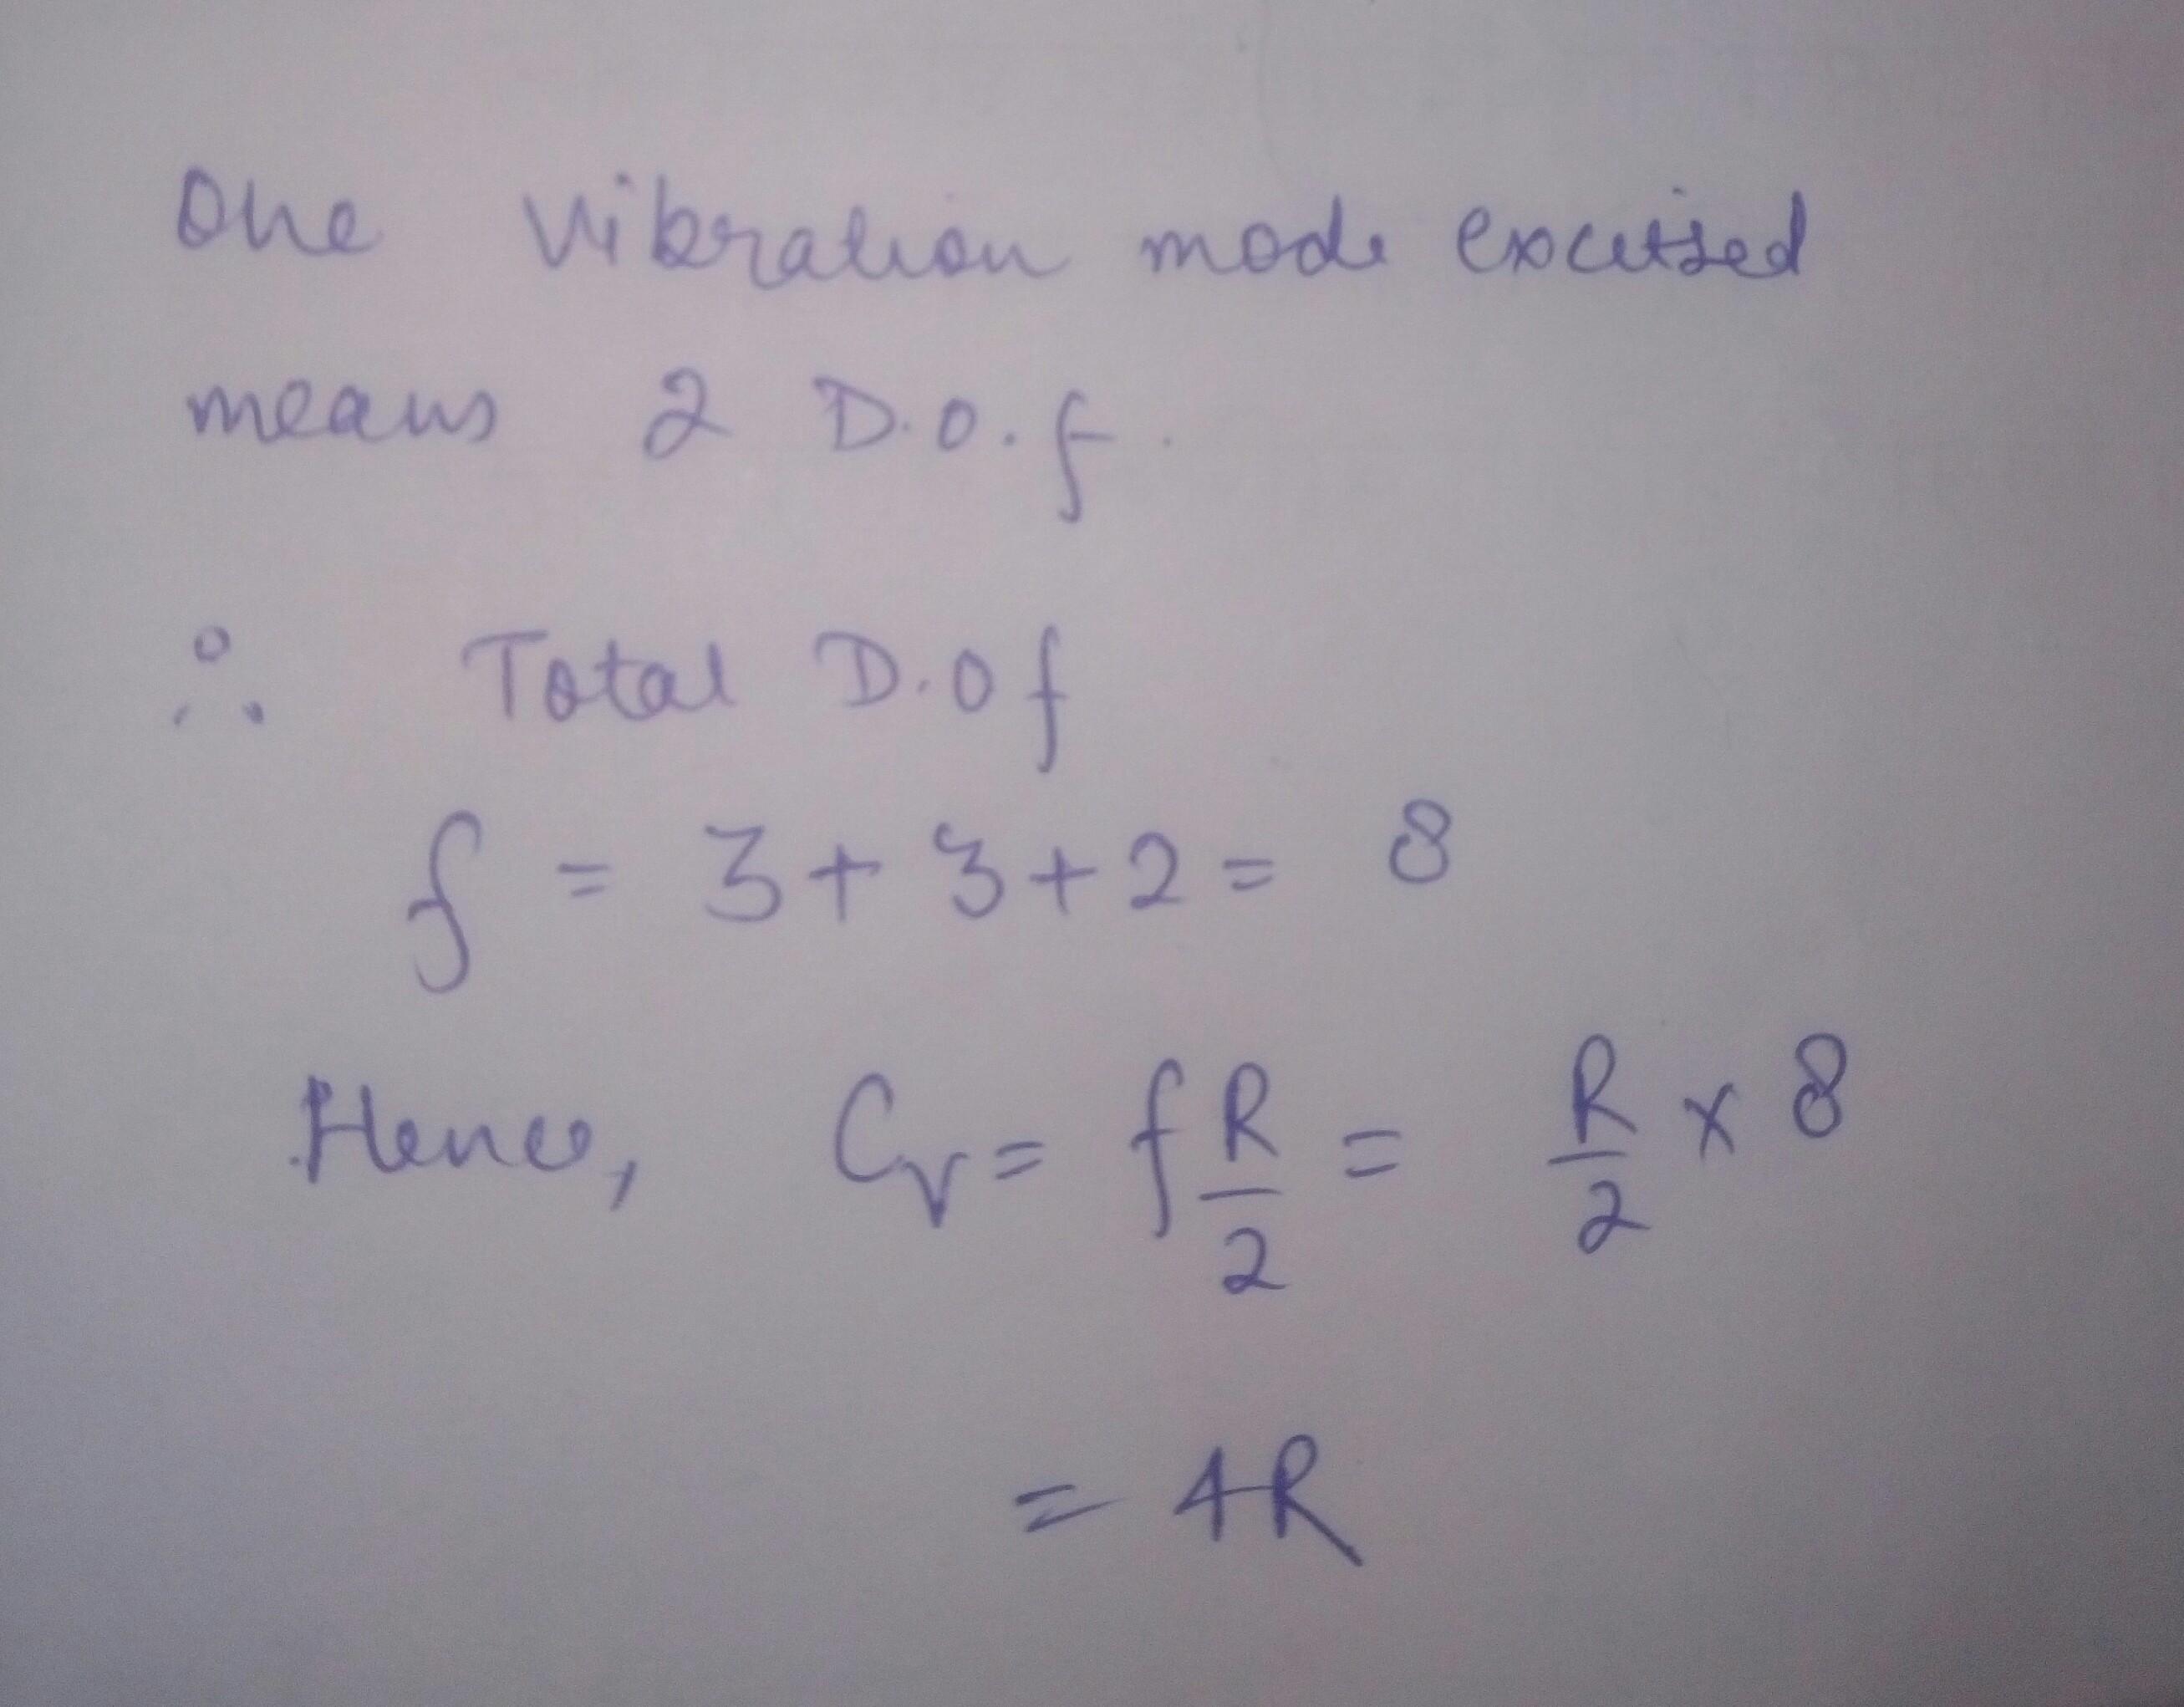 One vibration mode excited
means 2 D.O.f.
∴ Total D.Of
f = 3 + 3 + 2 = 8
Hence, Cv = f R/2 = R/2 × 8
= 4R